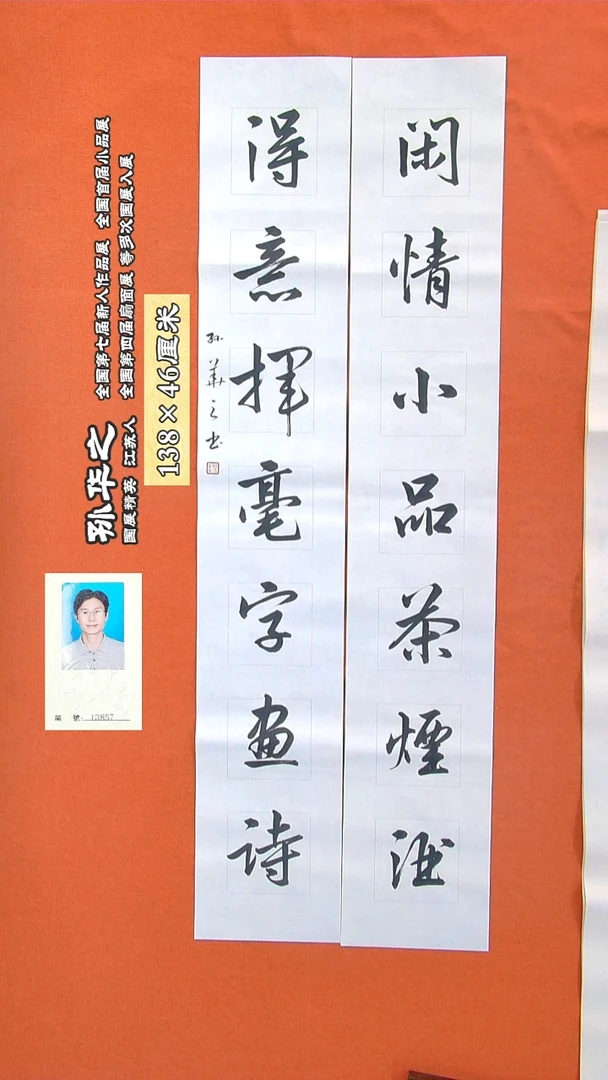 闲情小品茶煙酒
得意揮毫字画诗
孙華之书
孙华之
国展精英 江苏人
全国第七届新人作品展 全国首届小品展
全国第四届扇面展 等多次国展入展
138×46厘米
編 號: 13857